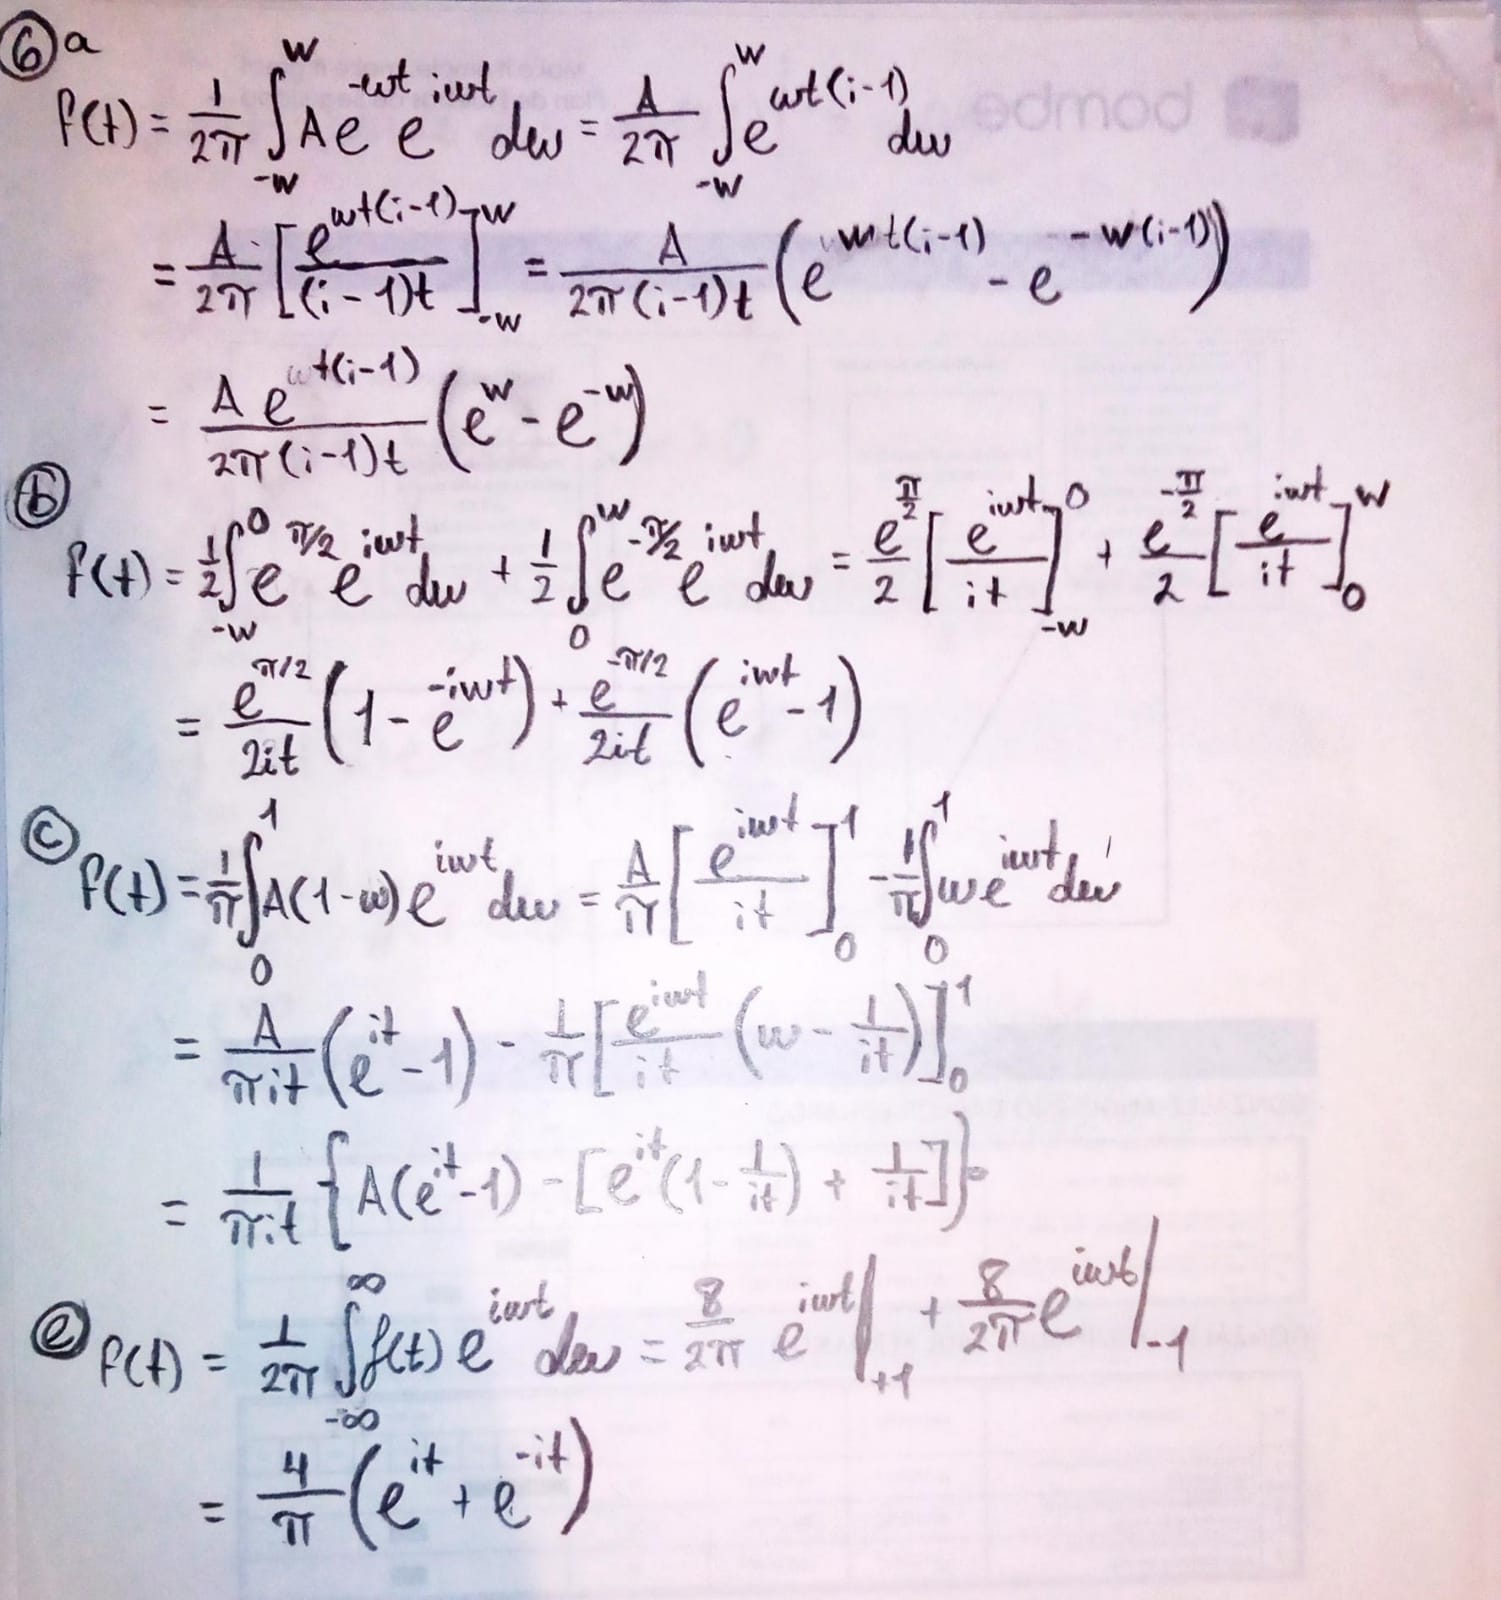 ⑥a
f(t) = 1/2π ∫_{-w}^{w} A e^{-ωt} e^{iωt} dω = A/2π ∫_{-w}^{w} e^{ωt(i-1)} dω
= A/2π [e^{ωt(i-1)}/(i-1)t]_{-w}^{w} = A/2π(i-1)t (e^{wt(i-1)} - e^{-w(i-1)})
= A e^{wt(i-1)}/2π(i-1)t (e^{w} - e^{-w})
ⓑ
f(t) = 1/2 ∫_{-w}^{0} e^{π/2} e^{iωt} dω + 1/2 ∫_{0}^{w} e^{-π/2} e^{iωt} dω = e^{π/2}/2 [e^{iωt}/it]_{-w}^{0} + e^{-π/2}/2 [e^{iωt}/it]_{0}^{w}
= e^{π/2}/2it (1 - e^{-iwt}) + e^{-π/2}/2it (e^{iwt} - 1)
ⓒ
f(t) = 1/π ∫_{0}^{1} A(1-ω) e^{iωt} dω = A/π [e^{iωt}/it]_{0}^{1} - 1/π ∫_{0}^{1} ω e^{iωt} dω
= A/πit (e^{it} - 1) - 1/π [e^{iωt}/it (ω - 1/it)]_{0}^{1}
= 1/πit {A(e^{it} - 1) - [e^{it}(1 - 1/it) + 1/it]}
ⓔ f(t) = 1/2π ∫_{-∞}^{∞} f(t) e^{iωt} dω = 8/2π e^{iωt}|_{+1} + 8/2π e^{iωt}|_{-1}
= 4/π (e^{it} + e^{-it})